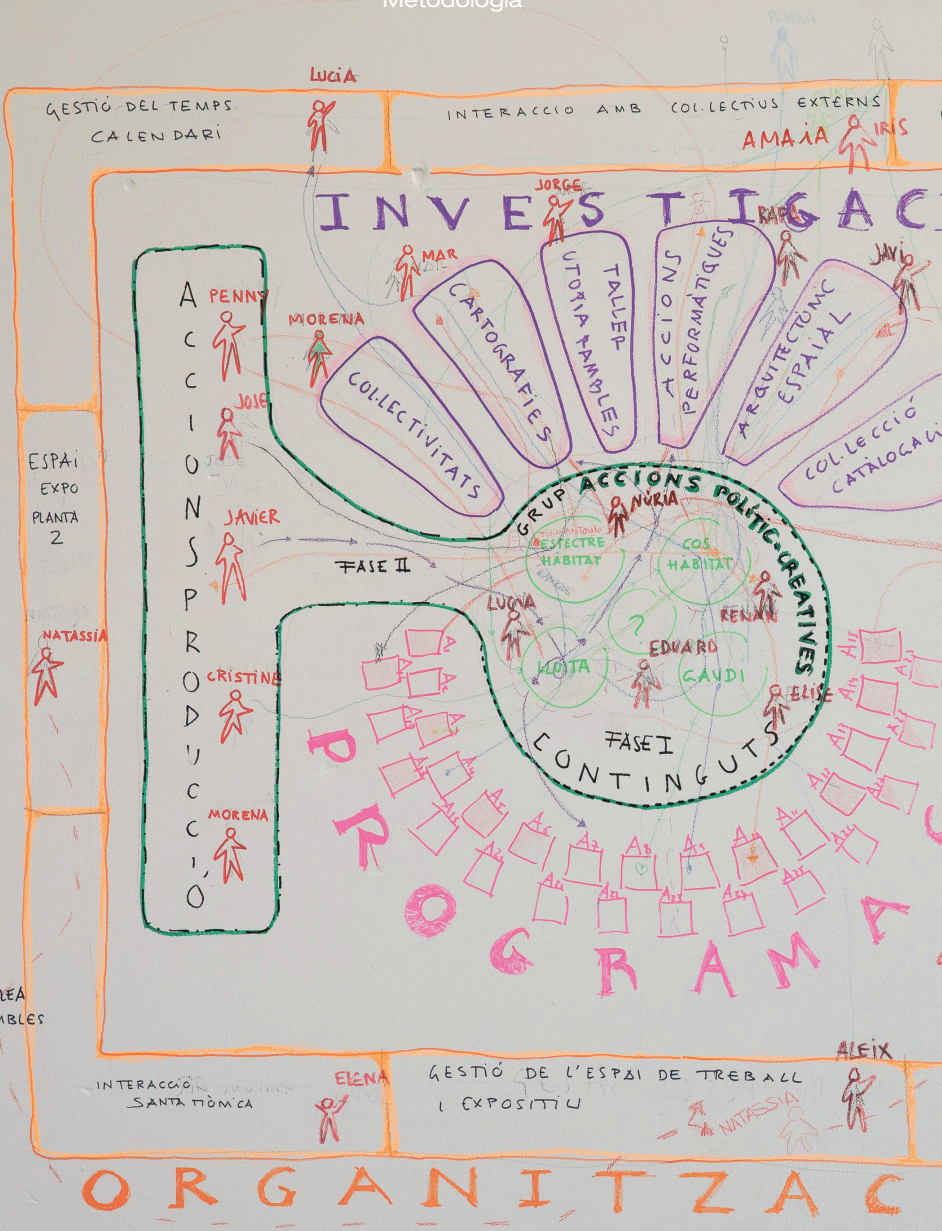 Metodologia
LUCIA
GESTIÓ DEL TEMPS
CALENDARI
INTERACCIO AMB COL.LECTIUS EXTERNS
AMAIA
IRIS
INVESTIGAC
JORGE
RAFA
MAR
JAVI
PENNY
MORENA
COL.LECTIVITATS
CARTOGRAFIES
TALLER
UTOPIA RAMBLES
ACCIONS
PERFORMÀTIQUES
ARQUITECTÒNIC
ESPAIAL
COL.LECCIÓ
ACCIONS PRODUCCIÓ
JOSE
JAVIER
CRISTINE
MORENA
FASE II
ESPAI
EXPO
PLANTA
2
NATASSIA
GRUP ACCIONS POLÍTIC-CREATIVES
NÚRIA
ESPECTRE
HÀBITAT
COS
HÀBITAT
LUCIA
RENAN
?
EDUARD
LLUITA
GAUDI
ELISE
FASE I
CONTINGUTS
A1
A2
A5
A6
A7
A8
A9
A11
A12
A13
A14
A15
A21
A22
A23
A24
A25
PROGRAMA
ALEIX
INTERACCIÓ
SANTA MÒNICA
ELENA
GESTIÓ DE L'ESPAI DE TREBALL
I EXPOSITIU
NATASSIA
ORGANITZAC